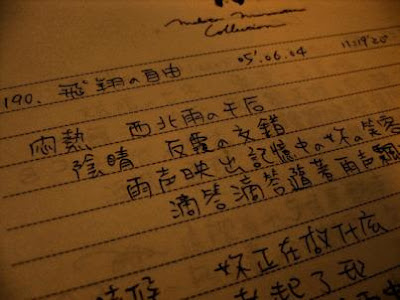 Collection
190. 飛翔の自由 05'.06.04 11:19'20"
悶熱 西北雨の午后
陰晴 反覆の交錯
雨声映出記憶中の妳の笑容
滴答滴答隨著雨声飄
妳正在做什広
時候
起了我